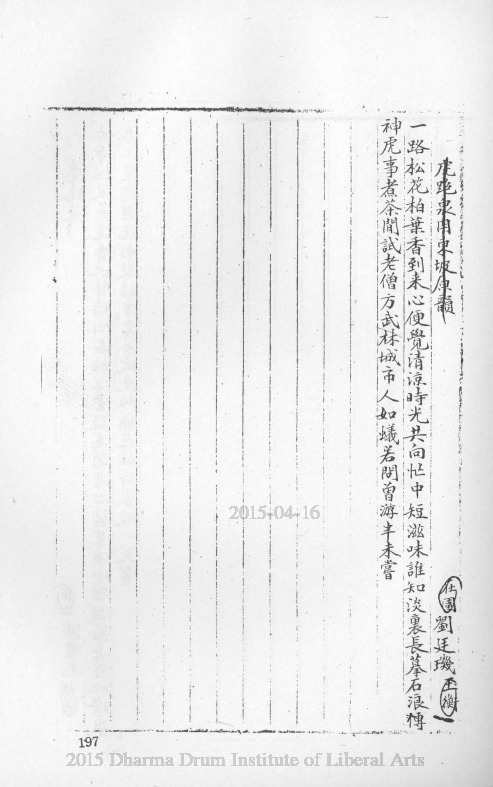 虎跑泉用東坡原韻 在園 劉廷璣 玉衡
一路松花柏葉香到来心便覺清涼時光共向忙中短滋味誰知淡裏長摹石浪傳
神虎事煮茶閒試老僧方武林城市人如蟻若問曾游半未嘗
2015-04-16
197
2015 Dharma Drum Institute of Liberal Arts